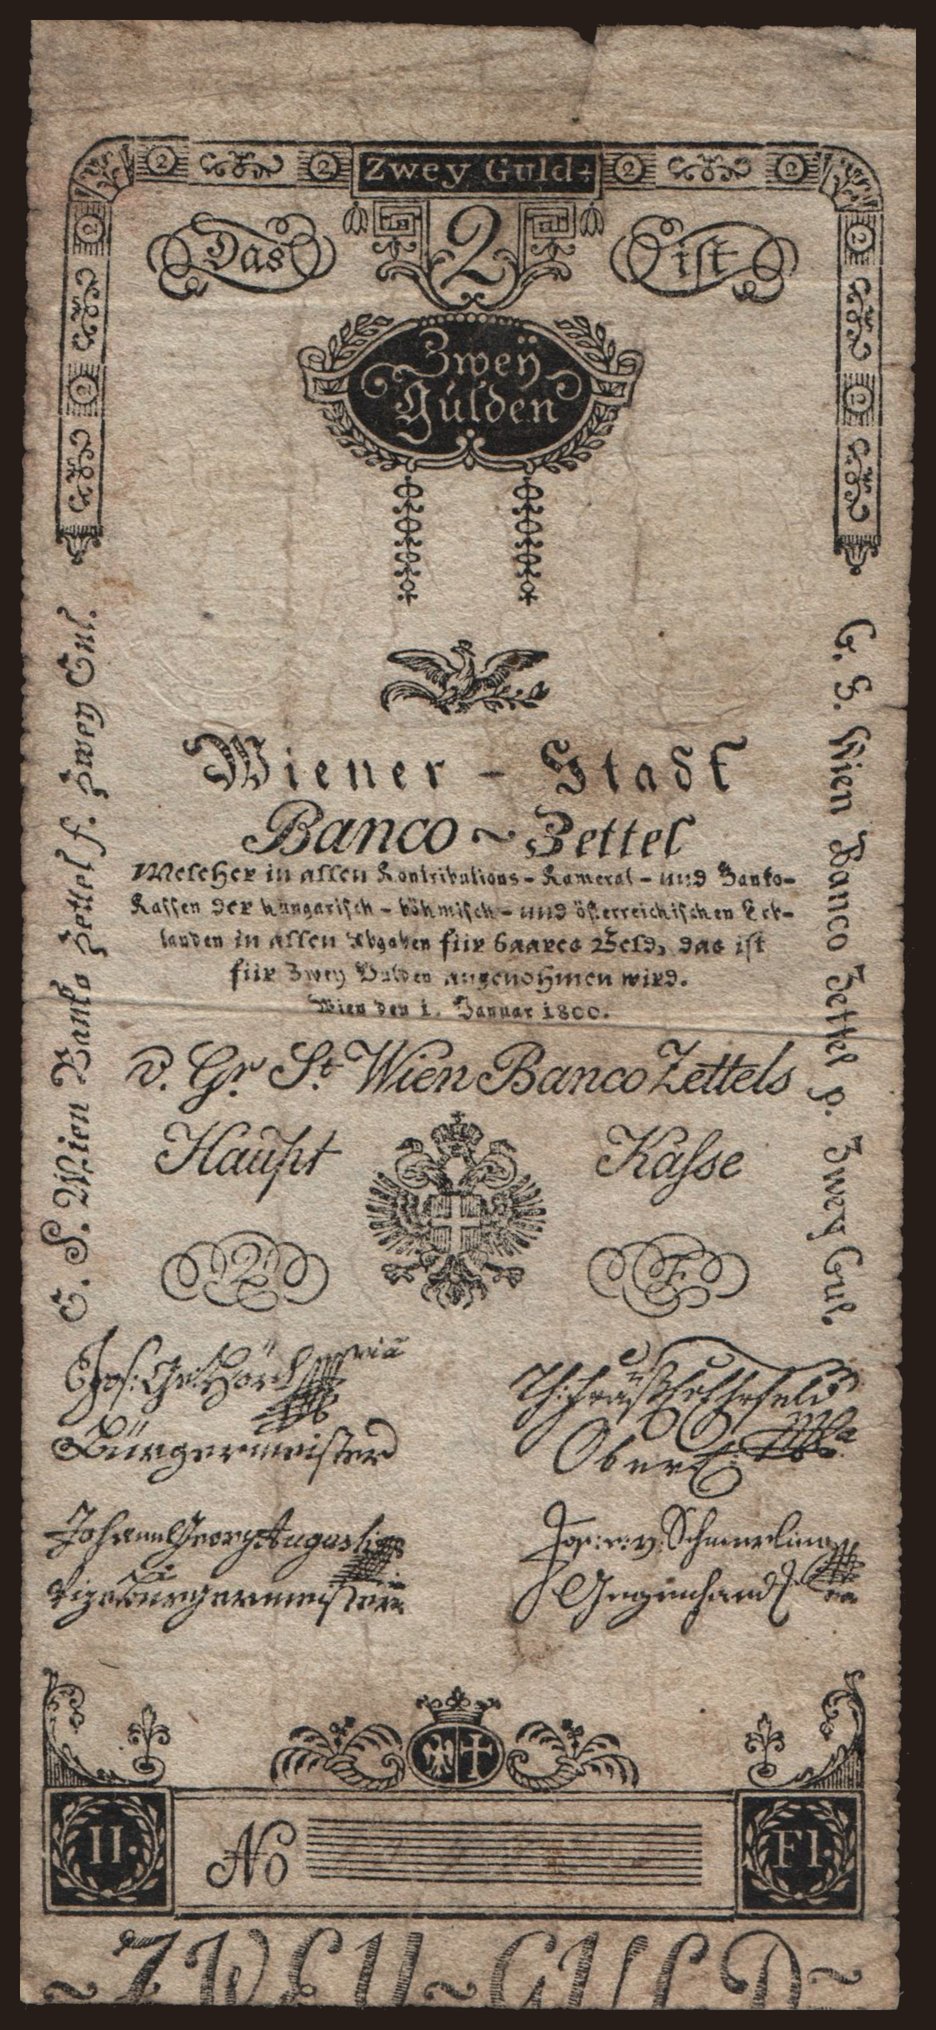 2 2 Zwey Guld 2 2
Das 2 ist
Zwey
Gulden
2
2
2
2
Wiener - Stadt
Banco ~ Zettel
Welcher in allen Kontributions - Kameral - und Banko-
Kassen der hungarisch - böhmisch - und österreichischen Erb-
landen in allen Abgaben für baares Geld, das ist
für Zwey Gulden angenohmen wird.
Wien den 1. Januar 1800.
v. Gr. St. Wien Banco Zettels
Haupt Kasse
F
G. S. Wien Banko Zettel f. Zwey Gul.
G. S. Wien Banco Zettel p. Zwey Gul.
Jos: Ge: Hörl
Bürgermeister
Ober
Johann Georg Augusti
Vizebürgermeister
Jos: v: Schmerling
Gegenhand
II. No Fl.
~ ZWEY ~ GULD ~